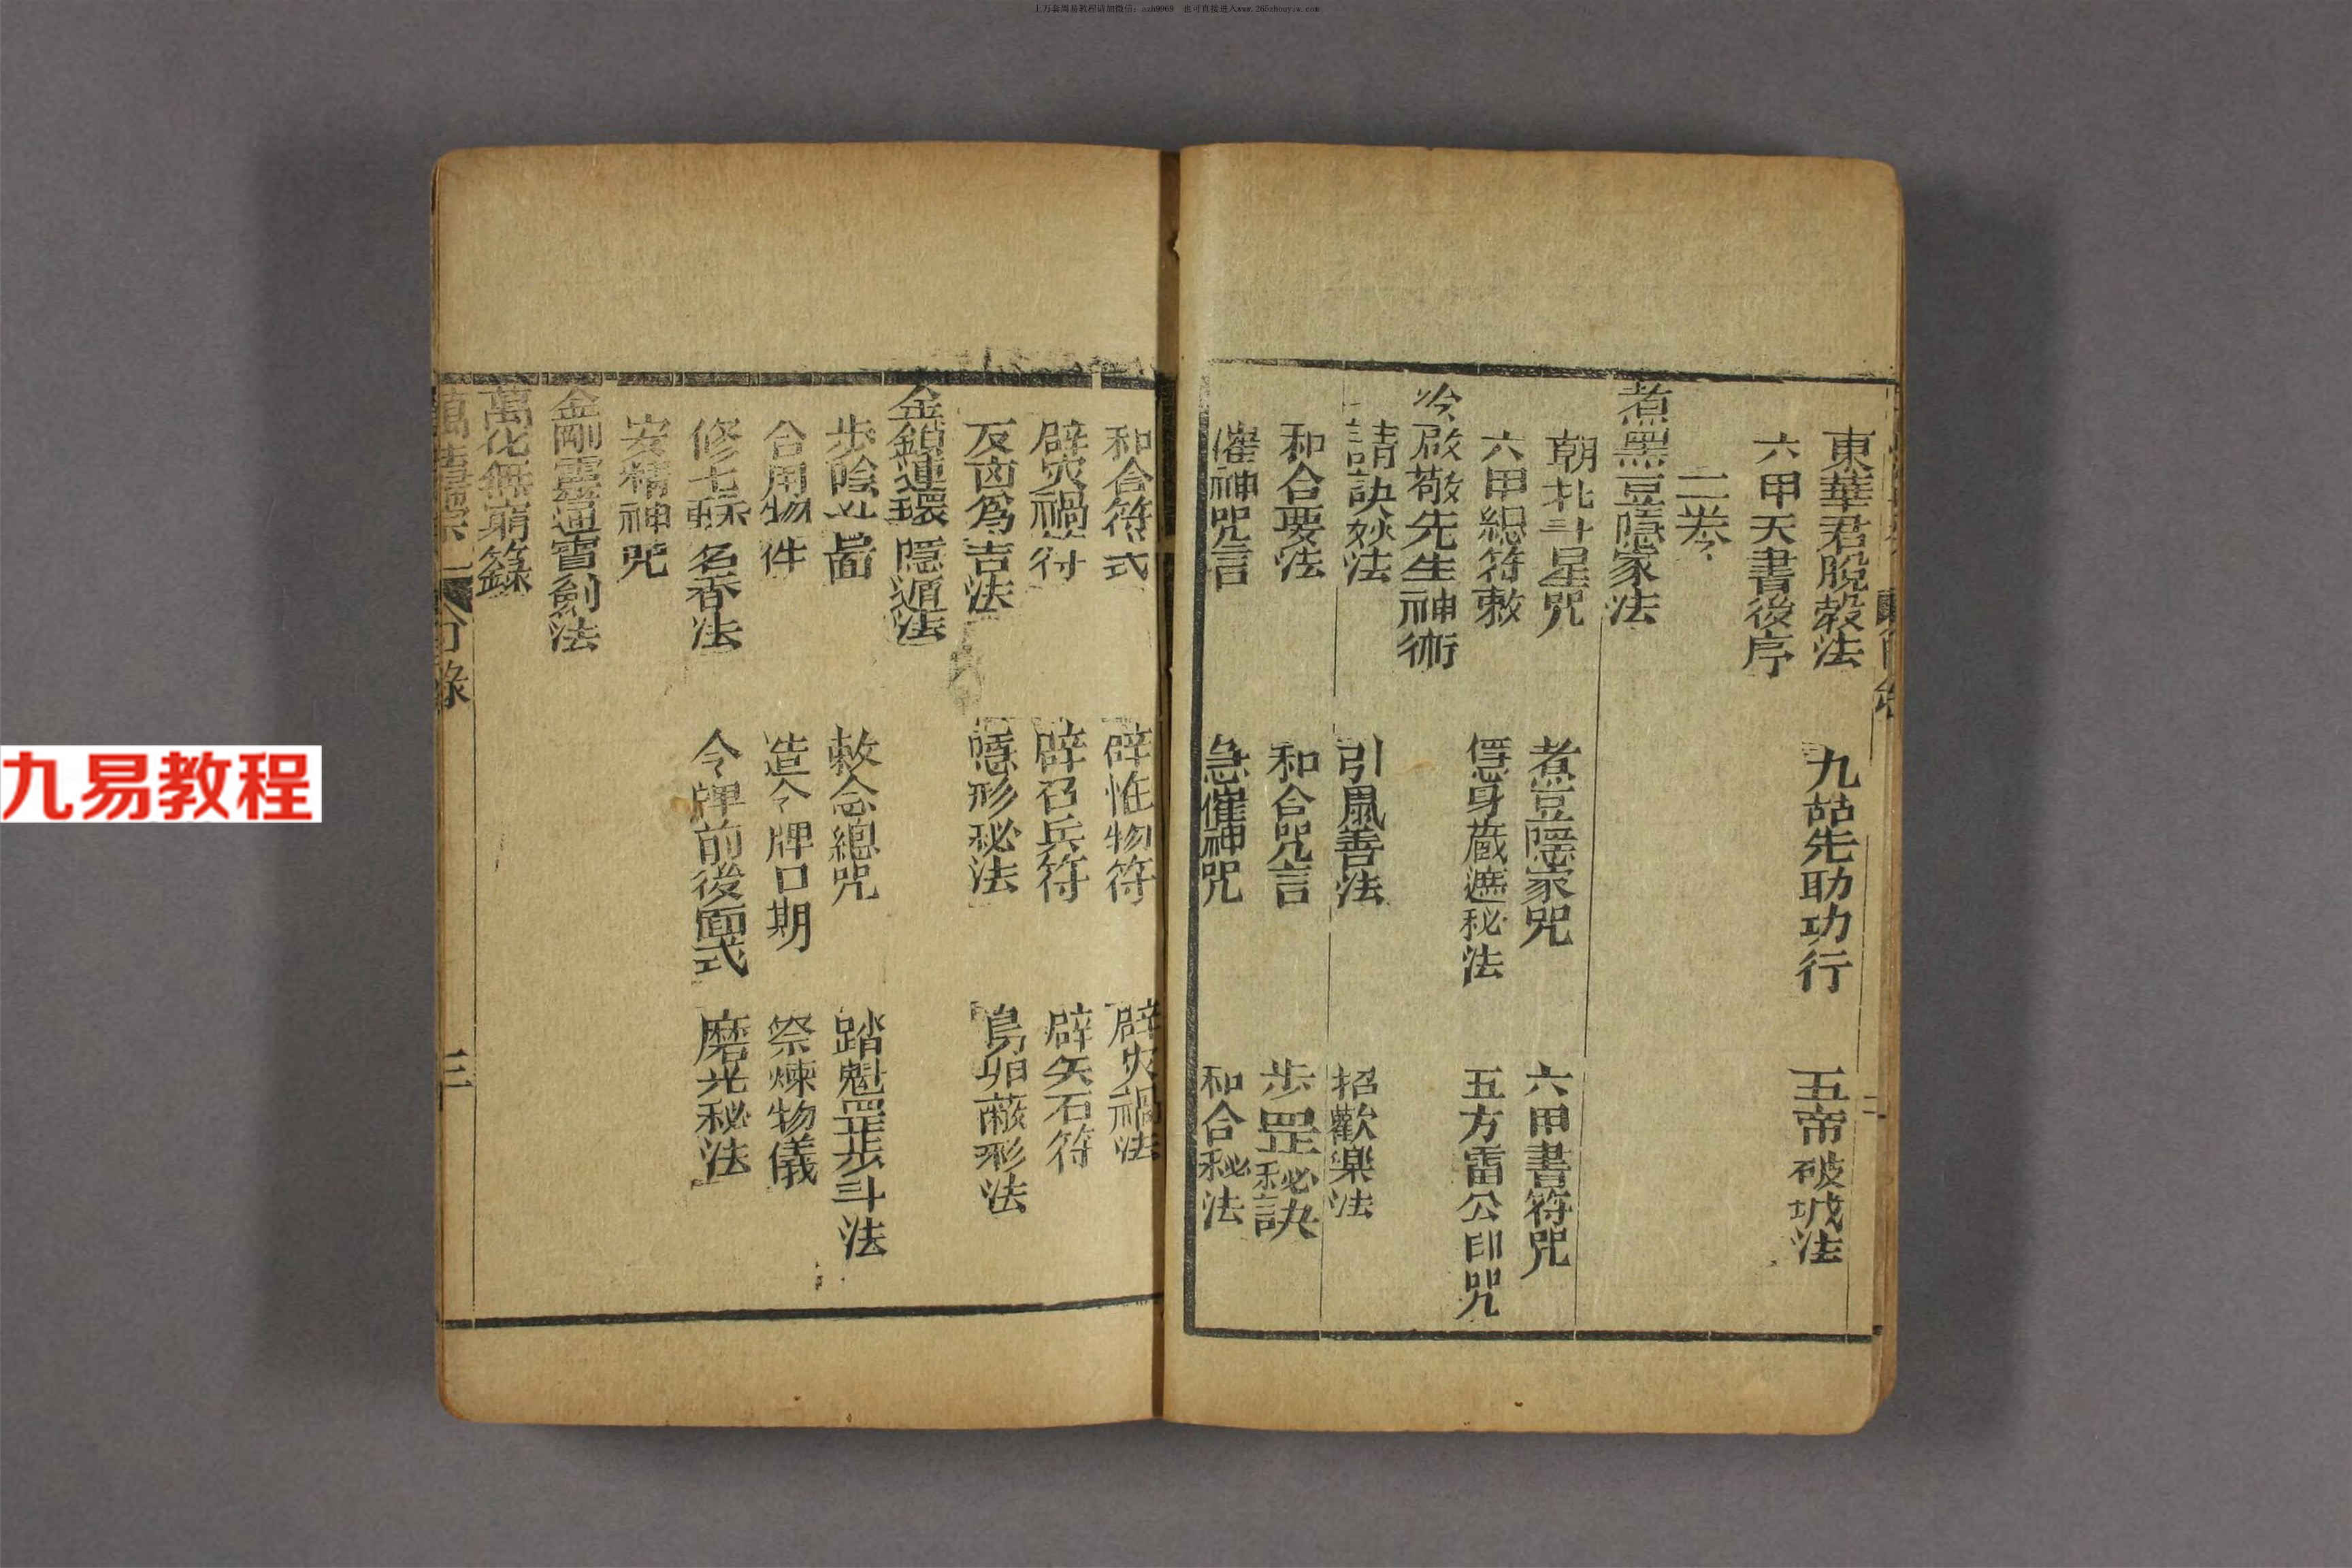 上万套周易教程请加微信：azh9969　也可直接进入www.265zhouyim.com
九易教程
東華君脫殼法　九喆先助功行　五帝破城法
六甲天書後序
二卷
煮黑豆隱家法
朝北斗星咒　煮豆隱家咒　六甲書符咒
六甲總符敕　隱身藏遮秘法　五方雷公印咒
啟敬先生神術
請訣妙法　引鳳善法　招歡樂法
和合要法　和合咒言　步罡秘訣
催神咒言　急催神咒　和合秘法
和合符式　辟怪物符　辟災禍法
辟災禍符　辟召兵符　辟矢石符
反凶為吉法　隱形秘法　烏卯蔽形法
金鎖連環隱遁法
步陰斗圖　敕念總咒　踏魁罡步斗法
合用物件　造令牌口期　祭煉物儀
修七蘇名香法　令牌前後面式　磨光秘法
安精神咒
金剛靈通寶劍法
萬化無窮錄
三